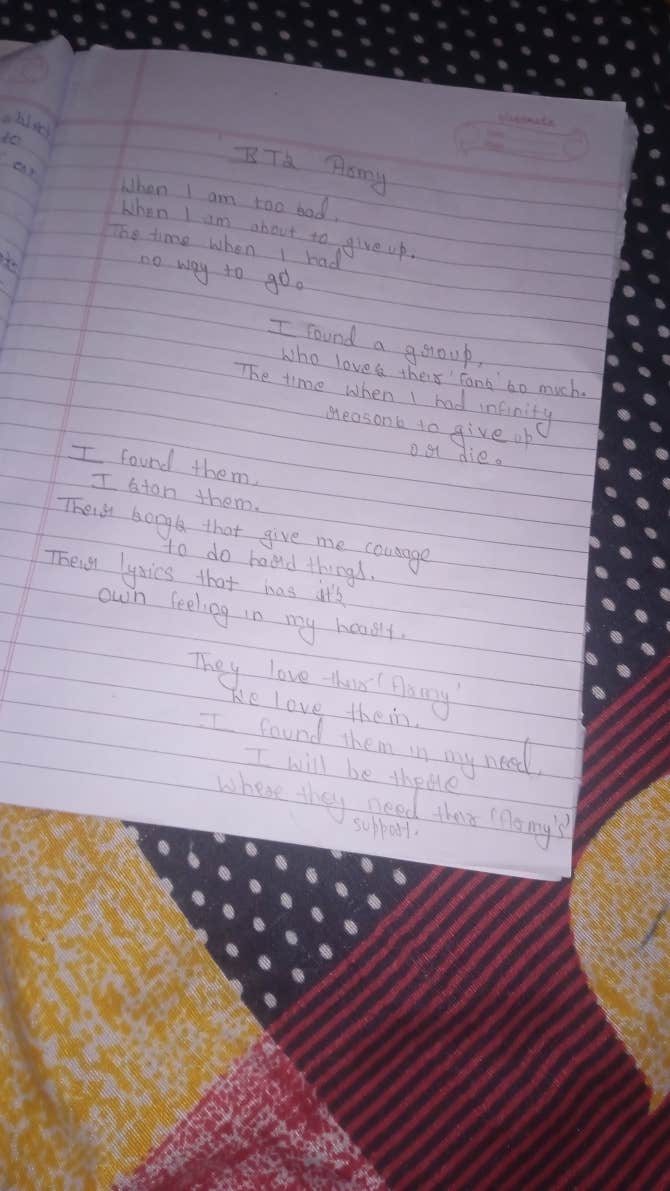 classmate
BTS Army
When I am too bad.
When I am about to give up.
The time when I had
no way to go.
I found a group,
who loves their 'fans' so much.
The time when I had infinity
reasons to give up
or die.
I found them.
I stan them.
Their songs that give me courage
to do hard things.
Their lyrics that has it's
own feeling in my heart.
They love their 'Army'
We love them.
I found them in my need.
I will be there
where they need their 'Army's'
support.